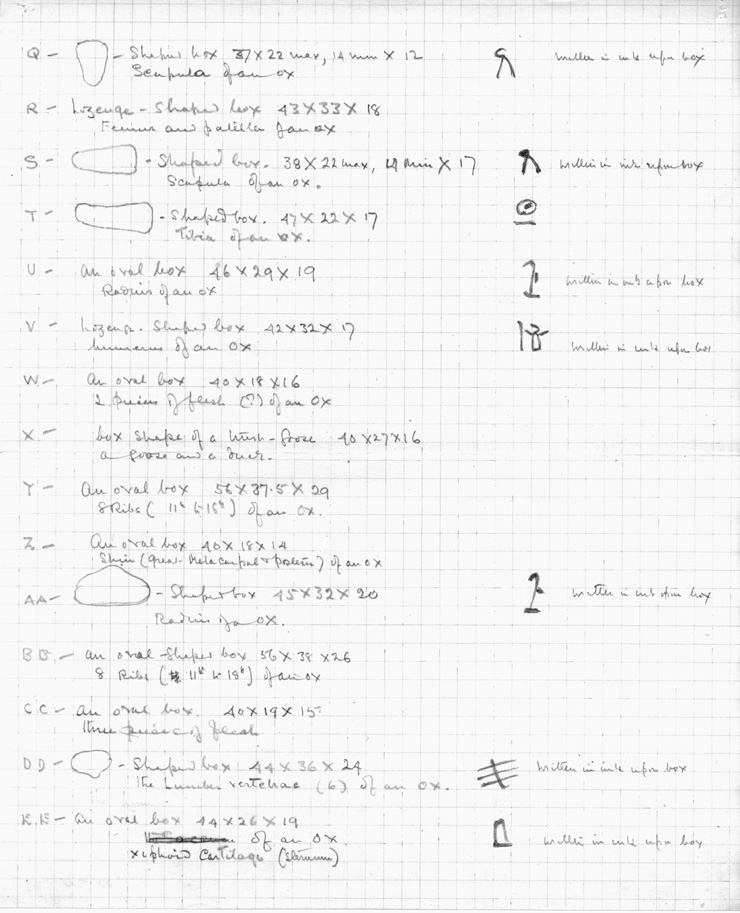 Q - - Shaped box 37 X 22 max, 14 mm X 12 written in ink upon box
Scapula of an ox
R - Lozenge - Shaped box 43 X 33 X 18
Femur and patella of an ox
S - - Shaped box. 38 X 22 max, 14 min X 17 written in ink upon box
Scapula of an ox.
T - - Shaped box. 47 X 22 X 17
Tibia of an ox.
U - An oval box 46 X 29 X 19 written in ink upon box
Radius of an ox
V - Lozenge. Shaped box 42 X 32 X 17
humerus of an OX written in ink upon box
W - An oval box 40 X 18 X 16
2 pieces of flesh (?) of an OX
X - box shape of a goose 40 X 27 X 16
a goose and a duck.
Y - An oval box 56 X 37.5 X 29
8 Ribs ( 11th to 18th ) of an OX.
Z - An oval box 40 X 18 X 14
Shin (great Metacarpal + ) of an ox
AA - - Shaped box 45 X 32 X 20 written in ink upon box
Radius of a OX.
BB - an oval - Shaped box 56 X 38 X 26
8 Ribs ( 11th to 18th ) of an ox
CC - an oval box. 40 X 19 X 15
three pieces of flesh
DD - - Shaped box 44 X 36 X 24 written in ink upon box
the Lumbar vertebrae (6) of an OX.
EE - an oval box 44 X 26 X 19
of an OX. written in ink upon box
xiphoid Cartilage (sternum)